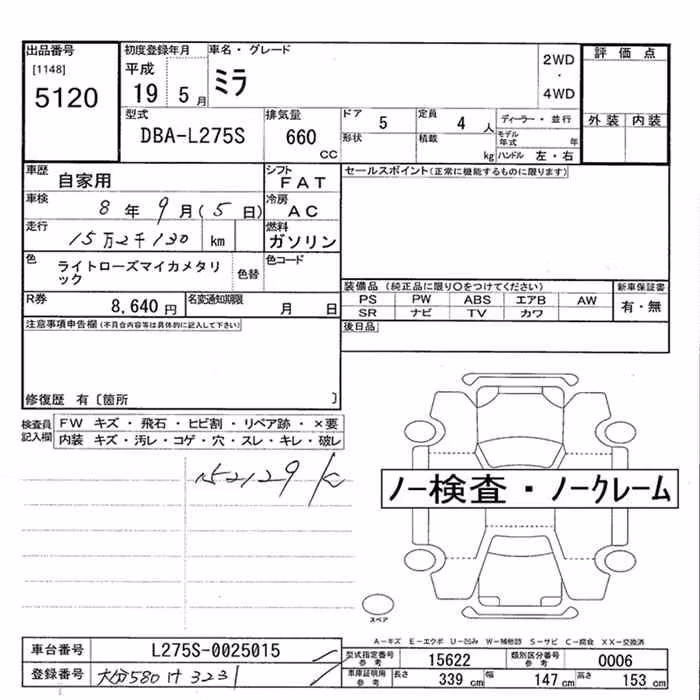 出品番号
[1148]
5120
初度登録年月
平成
19 5月
車名・グレード
ミラ
2WD
・
4WD
評価点
外装 内装
型式
DBA-L275S
排気量
660
CC
ドア 5
形状
定員 4人
積載 kg
ディーラー・並行
モデル年式 年
ハンドル 左・右
車歴
自家用
シフト
FAT
車検
8年9月(5日)
冷房
AC
走行
15万2千130 km
燃料
ガソリン
色
ライトローズマイカメタリック
色替
色コード
R券
8,640円
名変通知期限
月 日
セールスポイント(正常に機能するものに限ります)
装備品(純正品に限り○をつけてください)
PS PW ABS エアB AW
SR ナビ TV カワ
新車保証書
有・無
後日品
注意事項申告欄(不具合内容等は具体的に記入して下さい)
修復歴 有〔箇所 〕
検査員記入欄
FW キズ・飛石・ヒビ割・リペア跡・×要
内装 キズ・汚レ・コゲ・穴・スレ・キレ・破レ
152129 K
ノー検査・ノークレーム
スペア
A-キズ E-エクボ U-凹み W-補修跡 S-サビ C-腐食 XX-交換済
車台番号
L275S-0025015
登録番号
大分580け3231
型式指定番号
参考
15622
類別区分番号
参考
0006
車庫証明用
参考
長さ 339 cm 幅 147 cm 高さ 153 cm